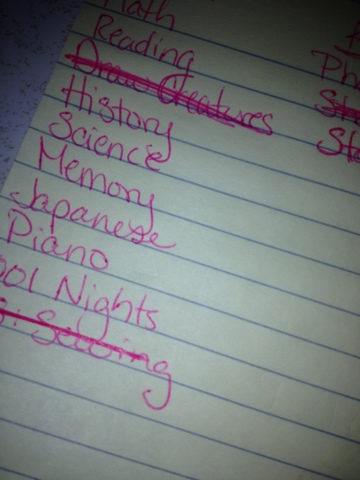 Math
Reading
Draw Creatures
History
Science
Memory
Japanese
Piano
ool Nights
Sewing
Ph
St